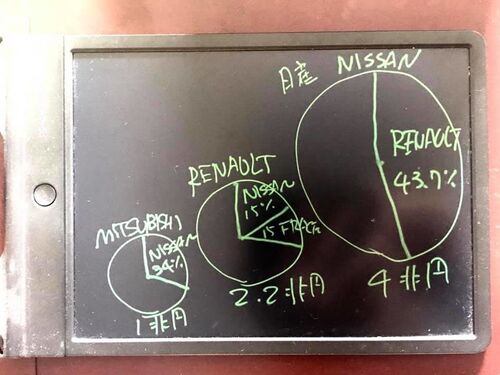 日産 NISSAN
RENAULT
43.7%
4兆円
RENAULT
NISSAN
15%
15 FRANCE
2.2兆円
MITSUBISHI
NISSAN
34%
1兆円